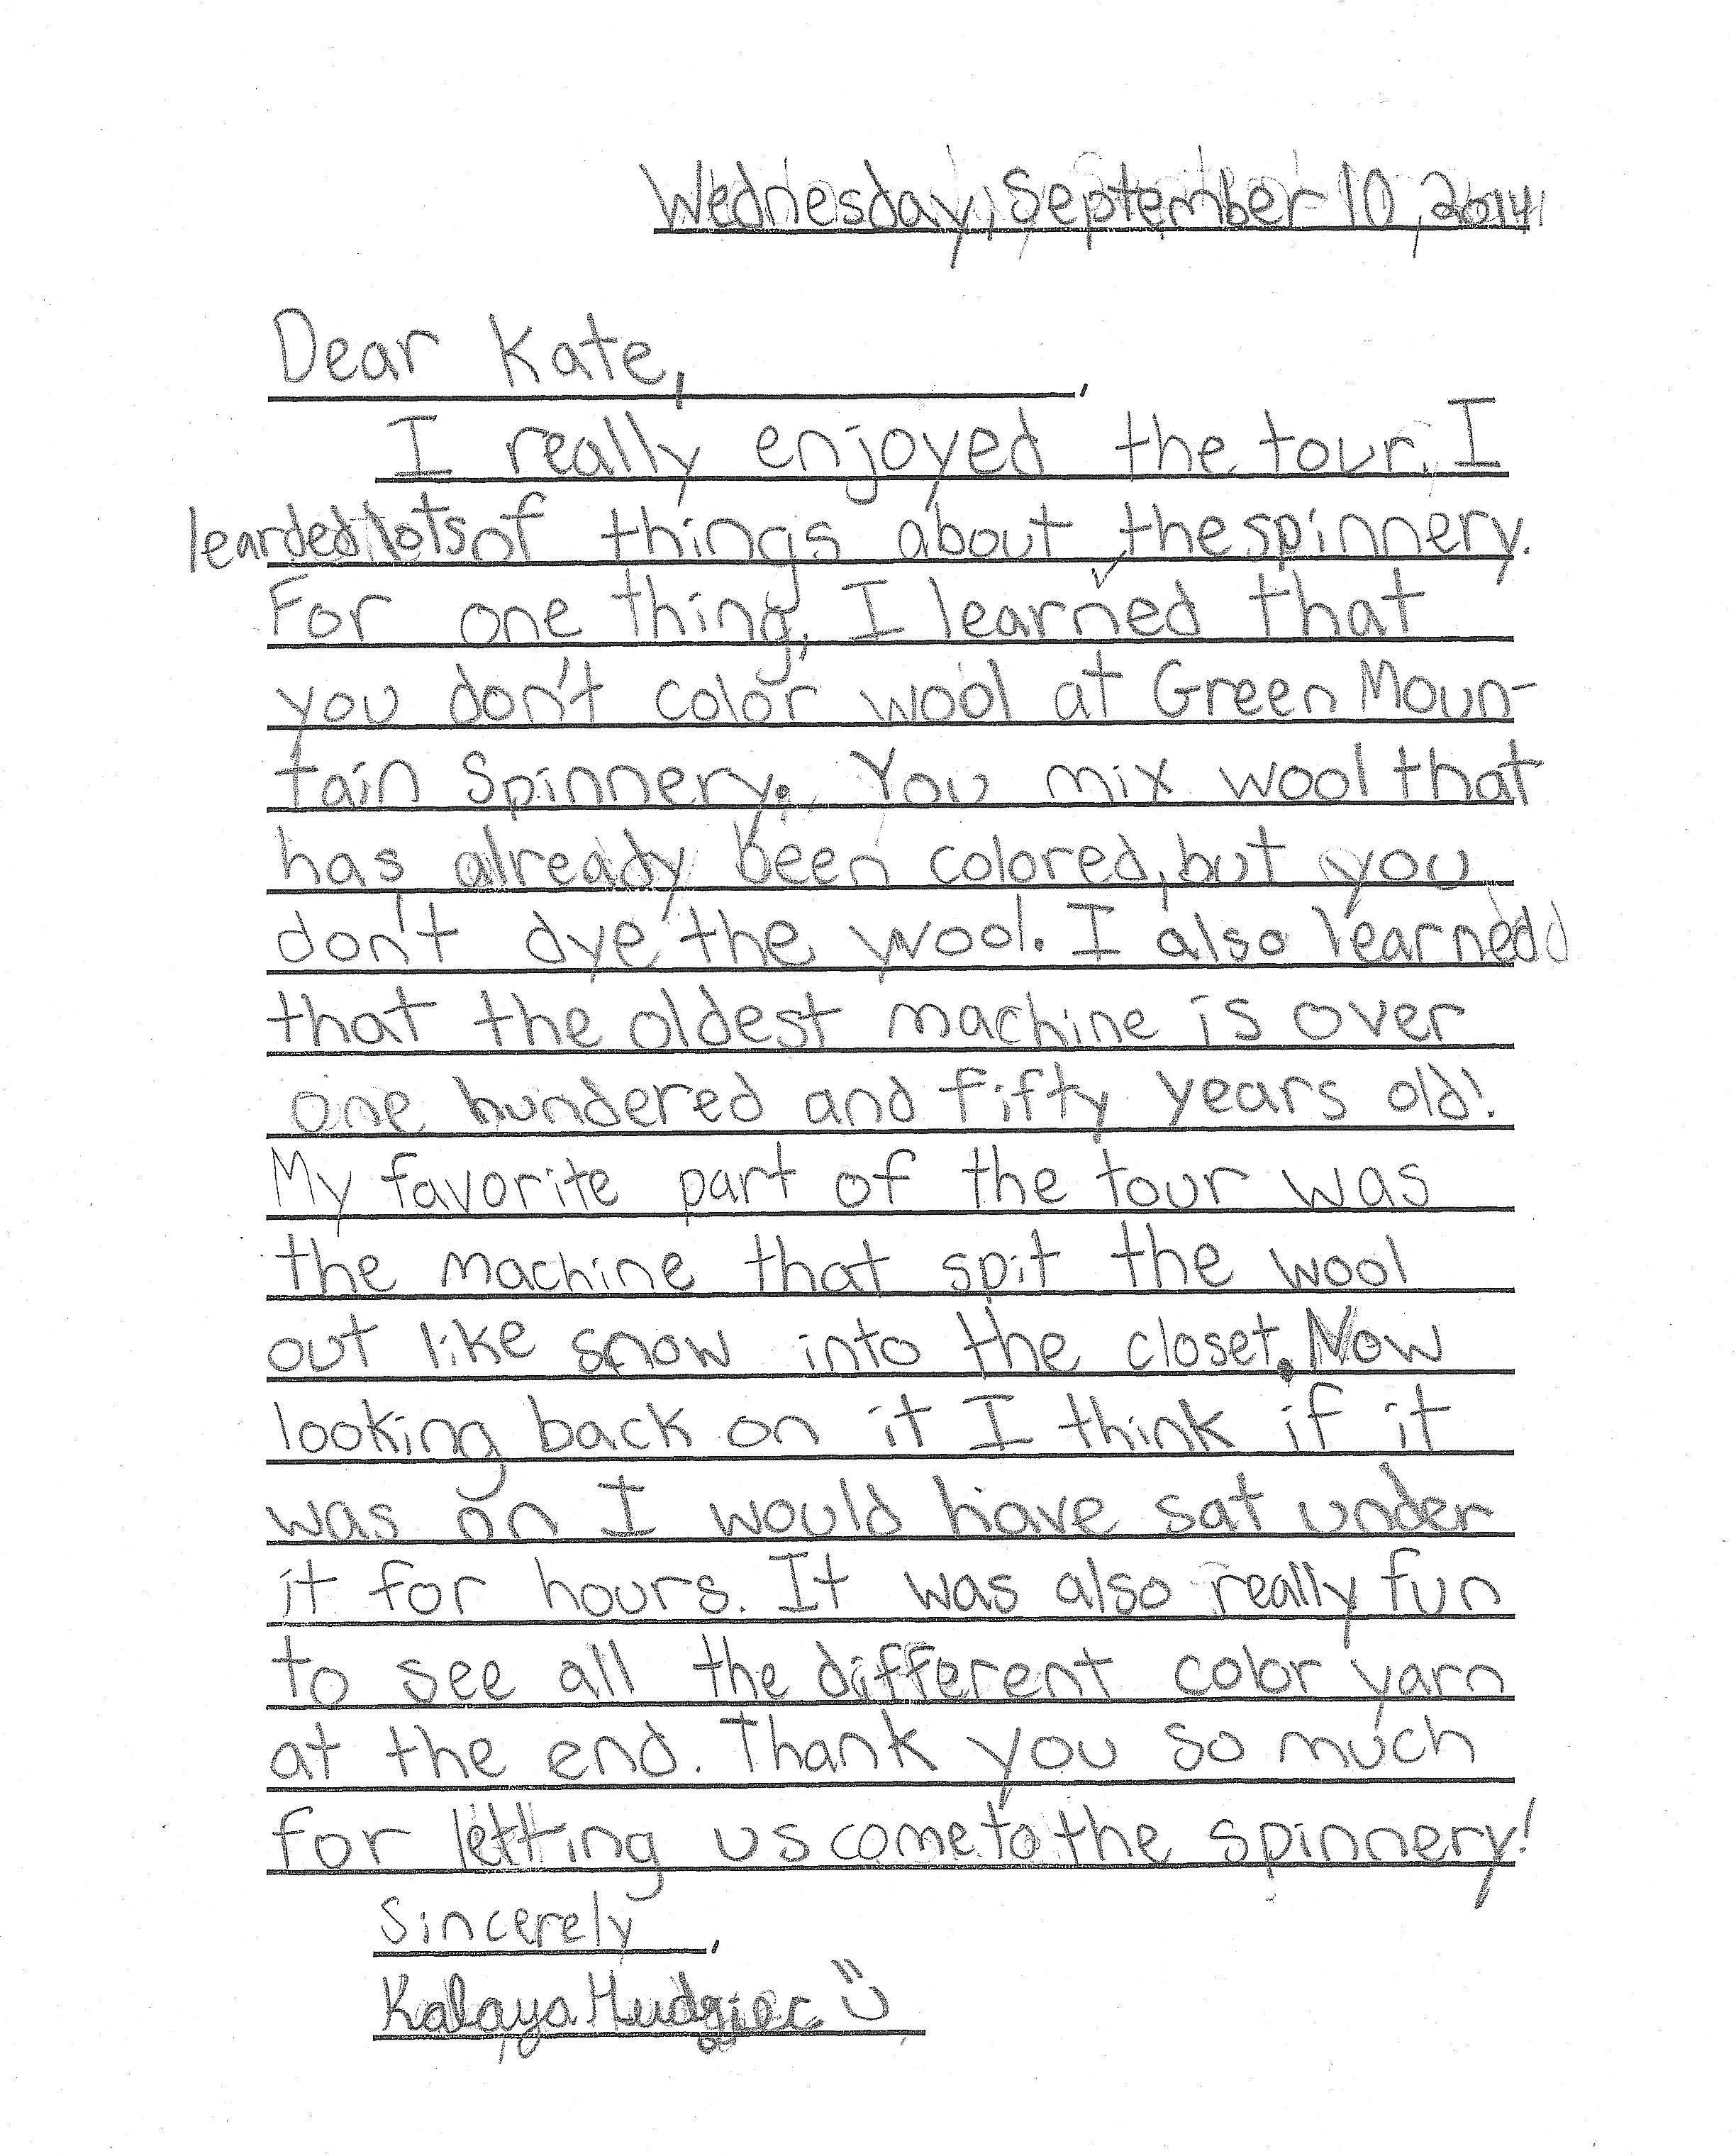 Wednesday, September 10, 2014
Dear Kate,
I really enjoyed the tour. I
learded lots of things about the spinnery.
For one thing, I learned that
you don't color wool at Green Moun-
tain Spinnery. You mix wool that
has already been colored, but you
don't dye the wool. I also learned
that the oldest machine is over
one hundered and fifty years old!
My favorite part of the tour was
the machine that spit the wool
out like snow into the closet. Now
looking back on it I think if it
was on I would have sat under
it for hours. It was also really fun
to see all the different color yarn
at the end. Thank you so much
for letting us come to the spinnery!
Sincerely,
Kalaya